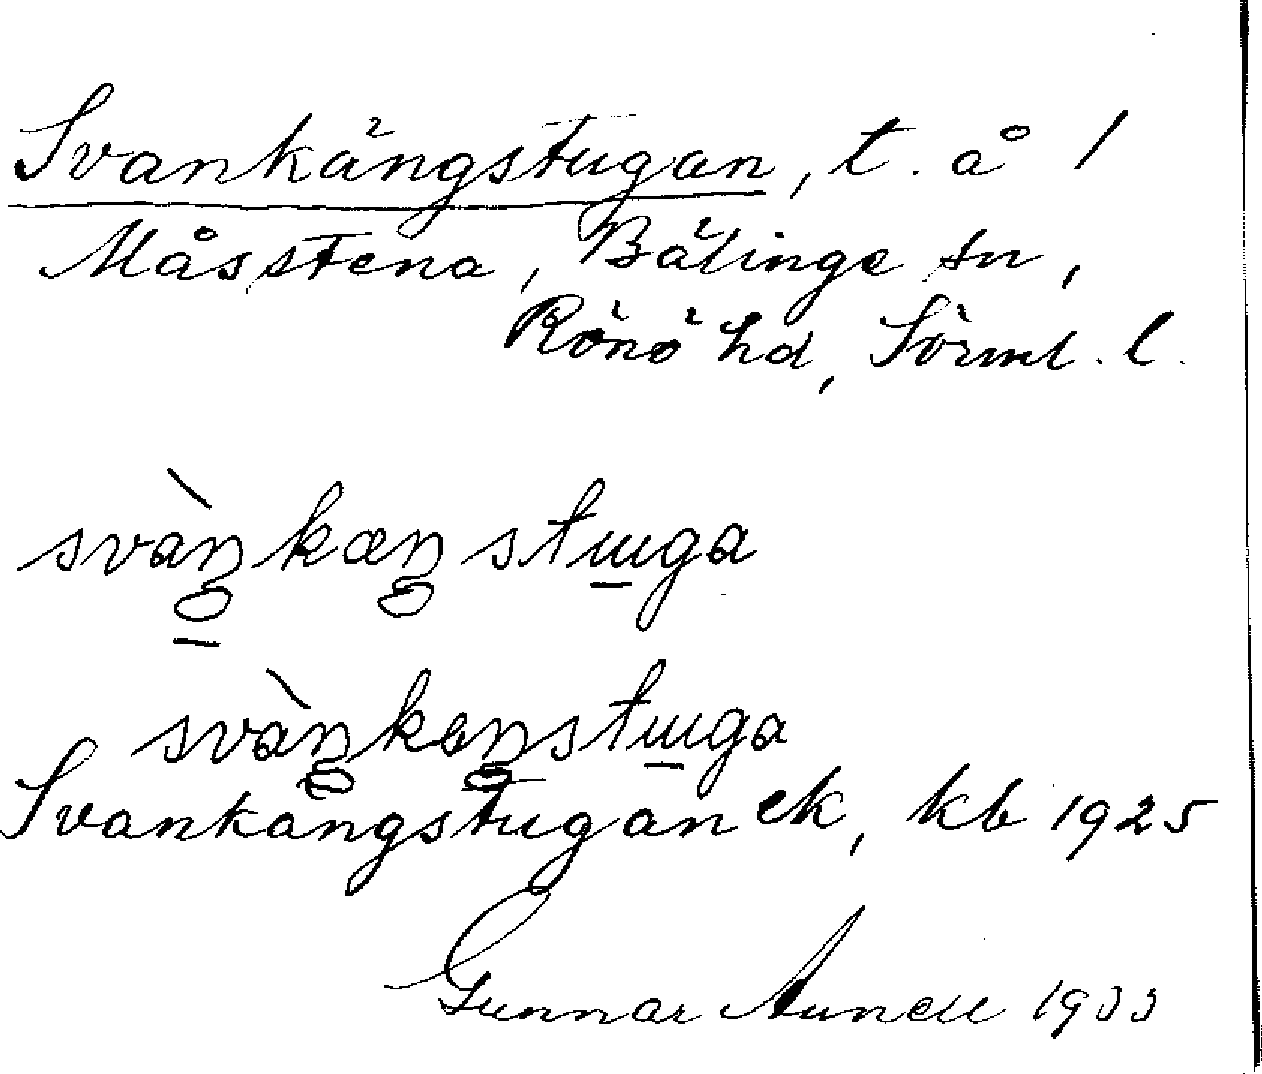 Svankängstugan, t. å 1
Måsstena, Bälinge sn,
Rönö hd, Sörml. l.
svàŋkæŋstɯga
svàŋkəŋstɯga
Svankängstugan ek, kb 1925
Gunnar Aunell 1933